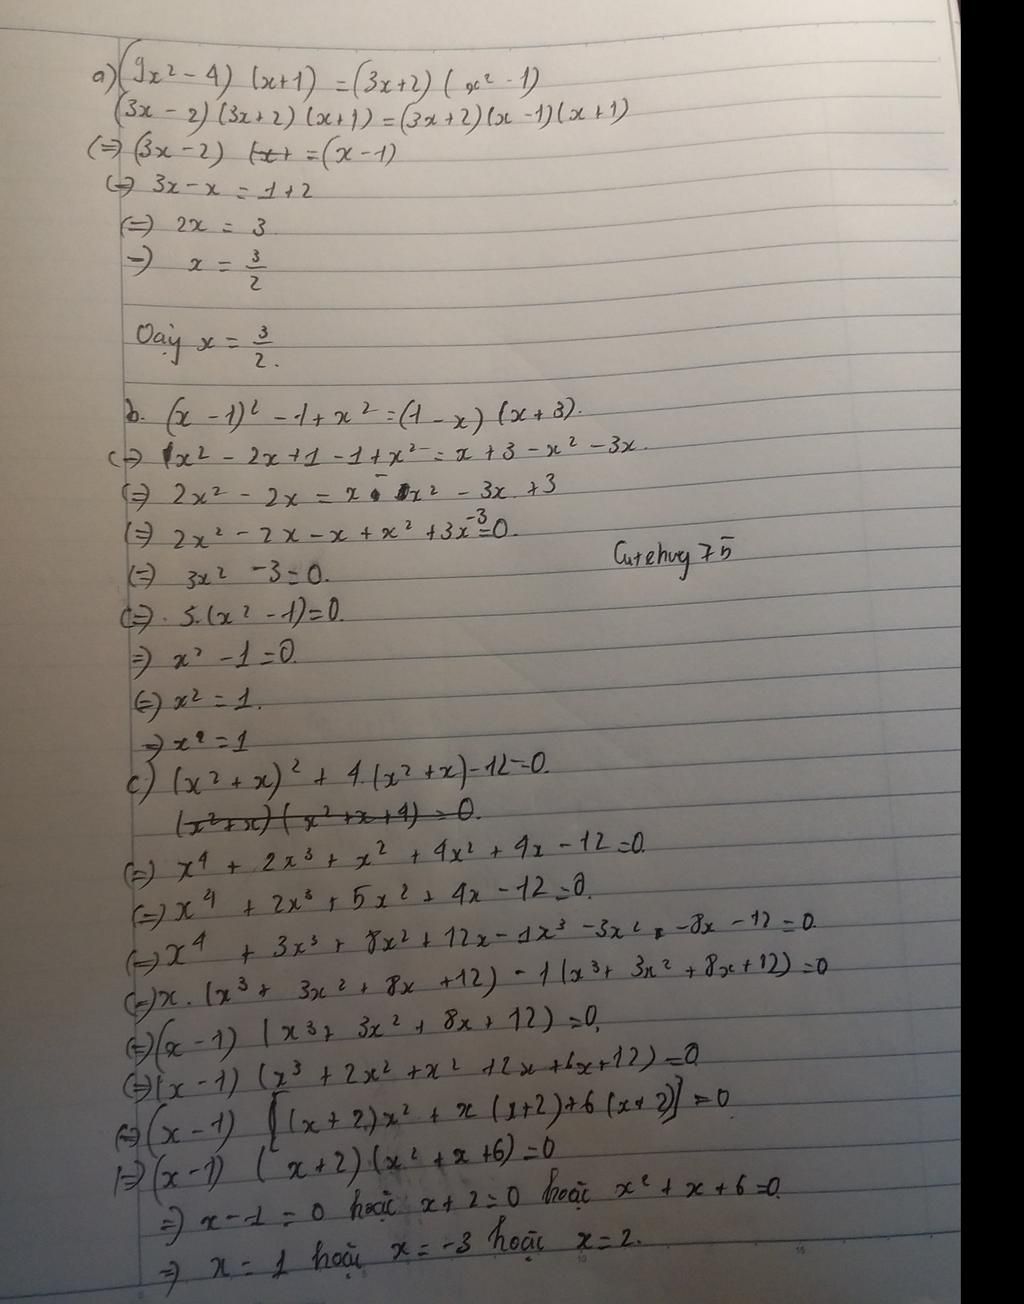 a) (9x² - 4) (x+1) = (3x+2) (x² - 1)
(3x - 2) (3x+2) (x+1) = (3x+2) (x - 1) (x+1)
(=) (3x - 2) = (x - 1)
(=) 3x - x = 1+2
(=) 2x = 3
=) x = 3/2
Vậy x = 3/2.
b. (x - 1)² - 1 + x² = (1 - x) (x + 3).
(=) x² - 2x + 1 - 1 + x² = x + 3 - x² - 3x.
(=) 2x² - 2x = x - x² - 3x + 3
(=) 2x² - 2x - x + x² + 3x -3 = 0.
Cutehuy 75
(=) 3x² - 3 = 0.
(=) . 3.(x² - 1) = 0.
=) x² - 1 = 0.
(=) x² = 1.
=) x² = 1
c) (x² + x)² + 4.(x² + x) - 12 = 0.
(x² + x) (x² + x + 4) = 0.
(=) x⁴ + 2x³ + x² + 4x² + 4x - 12 = 0.
(=) x⁴ + 2x³ + 5x² + 4x - 12 = 0.
(=) x⁴ + 3x³ + 8x² + 12x - 1x³ - 3x² - 8x - 12 = 0.
(=) x. (x³ + 3x² + 8x + 12) - 1 (x³ + 3x² + 8x + 12) = 0
(=) (x - 1) (x³ + 3x² + 8x + 12) = 0.
(=) (x - 1) (x³ + 2x² + x² + 2x + 6x + 12) = 0
(=) (x - 1) [(x + 2)x² + x (x+2) + 6 (x+2)] = 0
(=) (x - 1) (x + 2) (x² + x + 6) = 0
=) x - 1 = 0 hoặc x + 2 = 0 hoặc x² + x + 6 = 0.
=) x = 1 hoặc x = -3 hoặc x = 2.